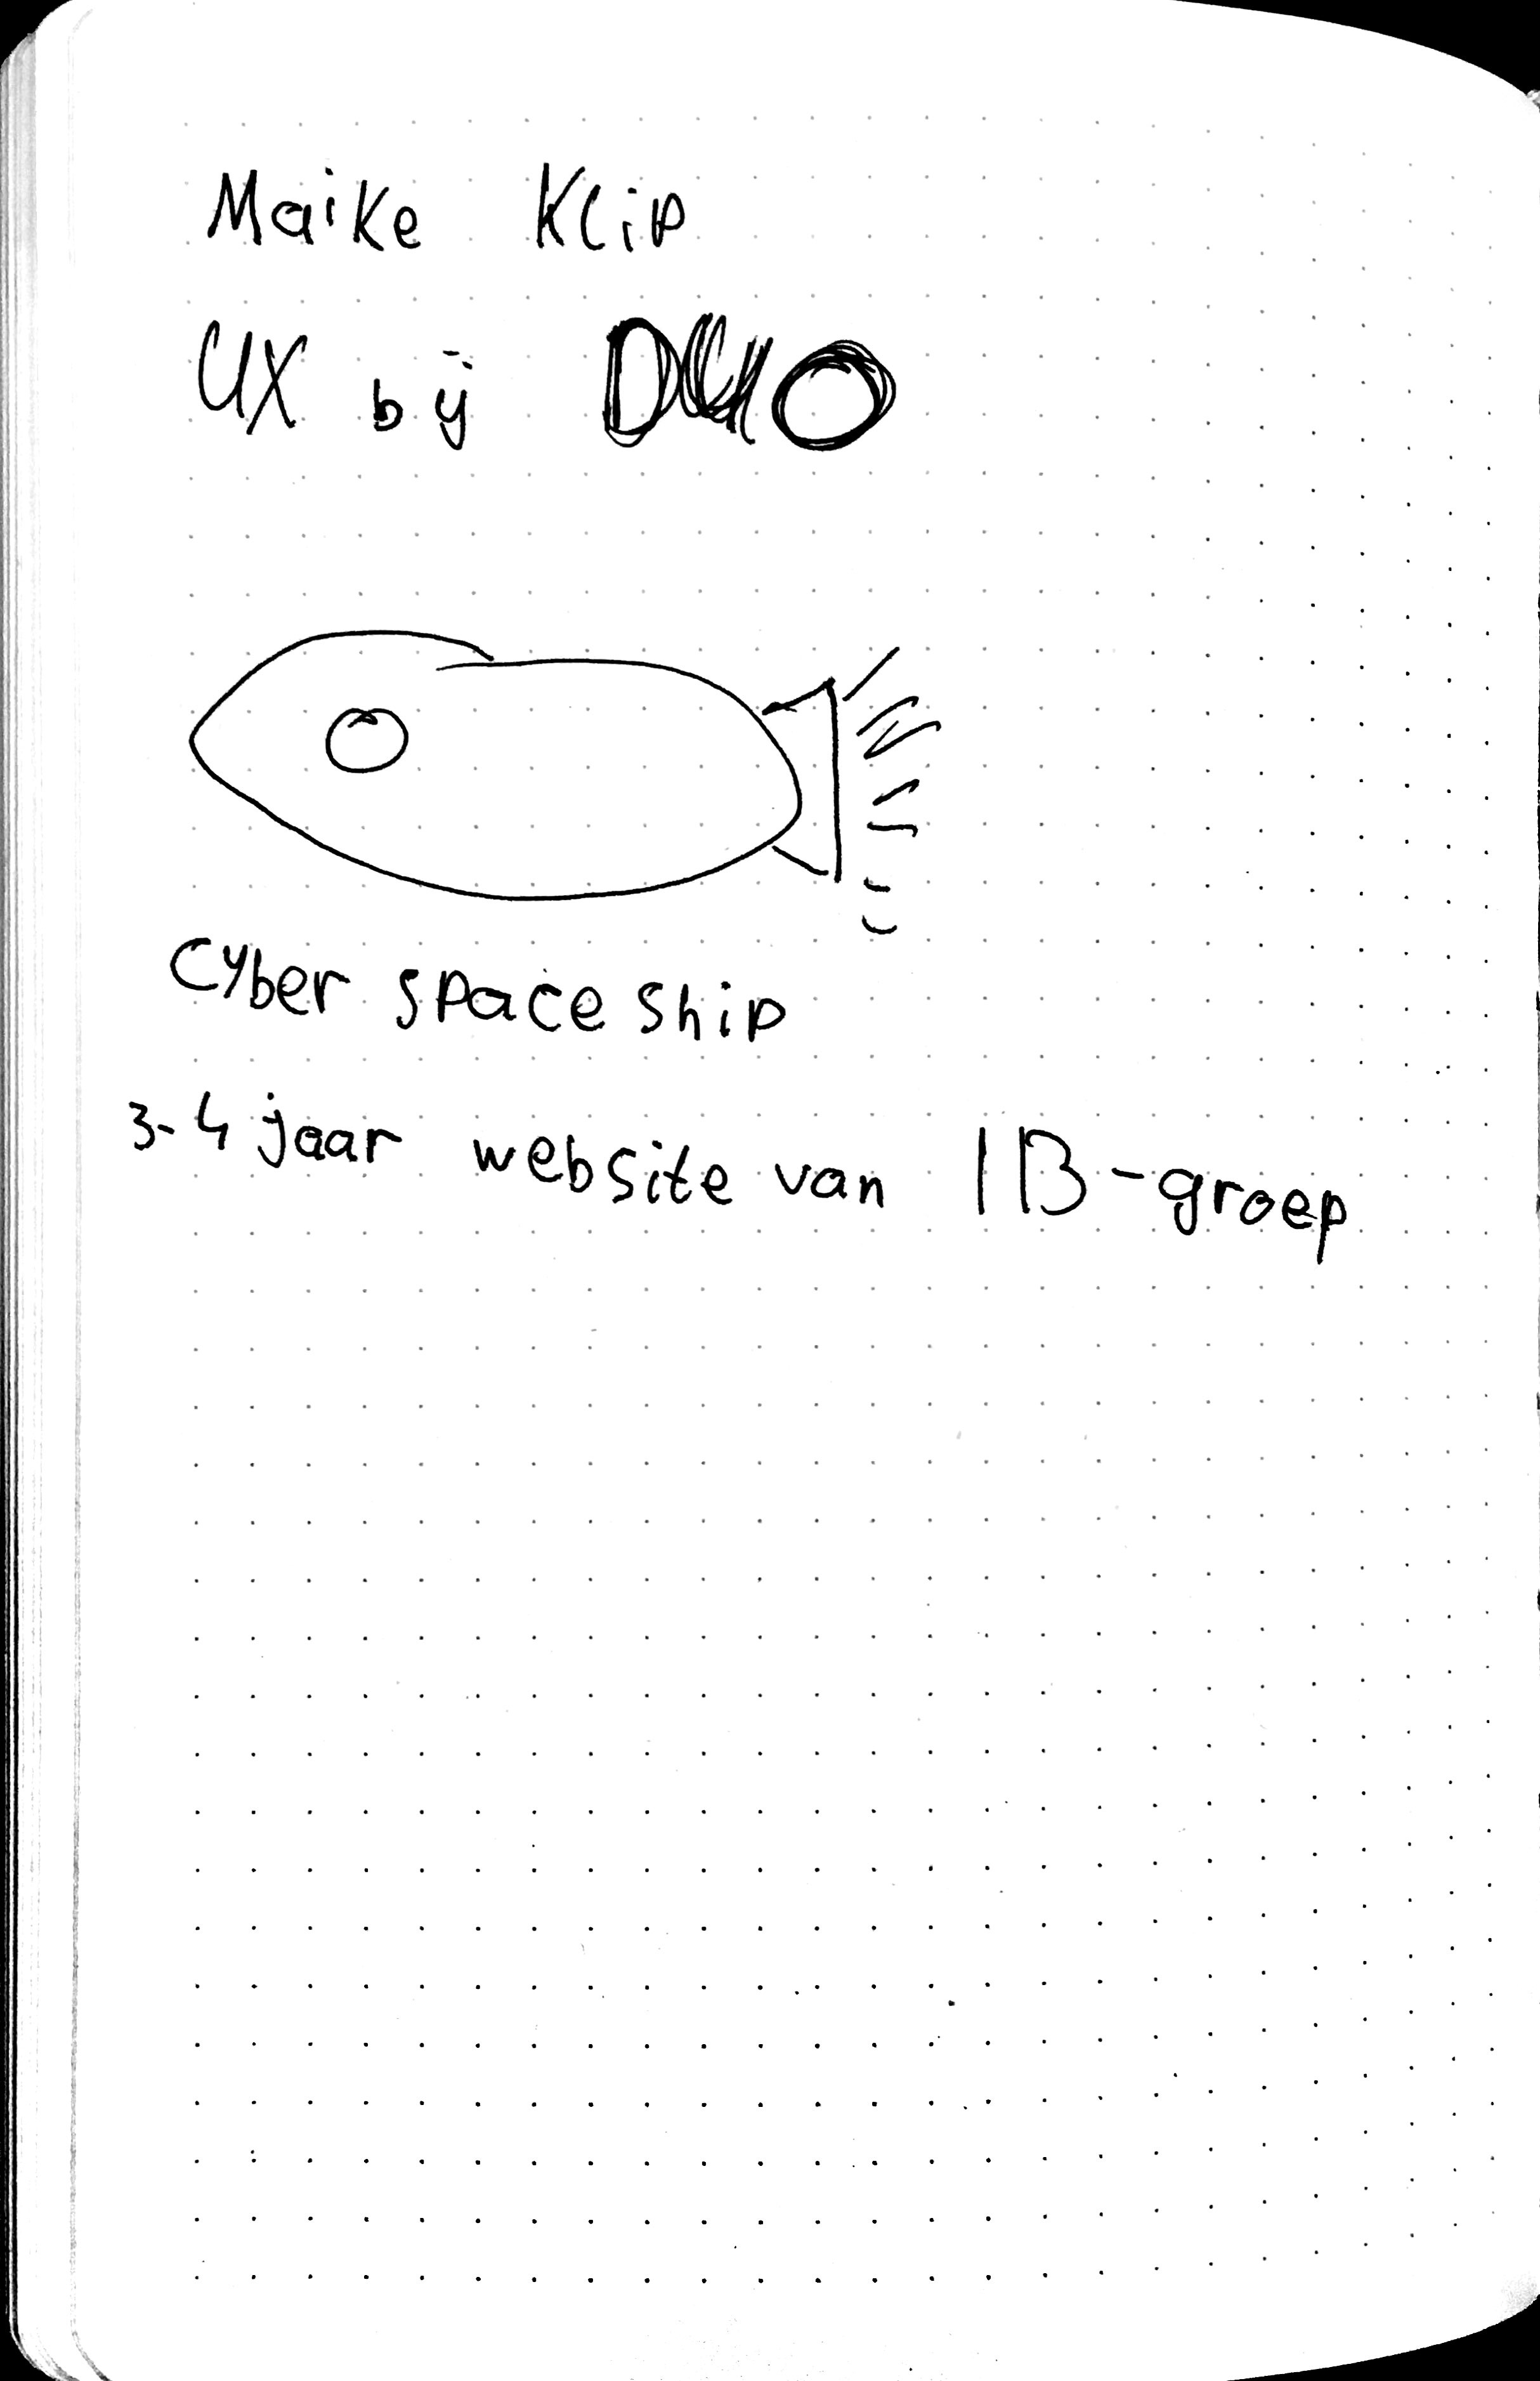 Maike Klip
UX bij DUO
Cyber space ship
3-4 jaar website van IB-groep